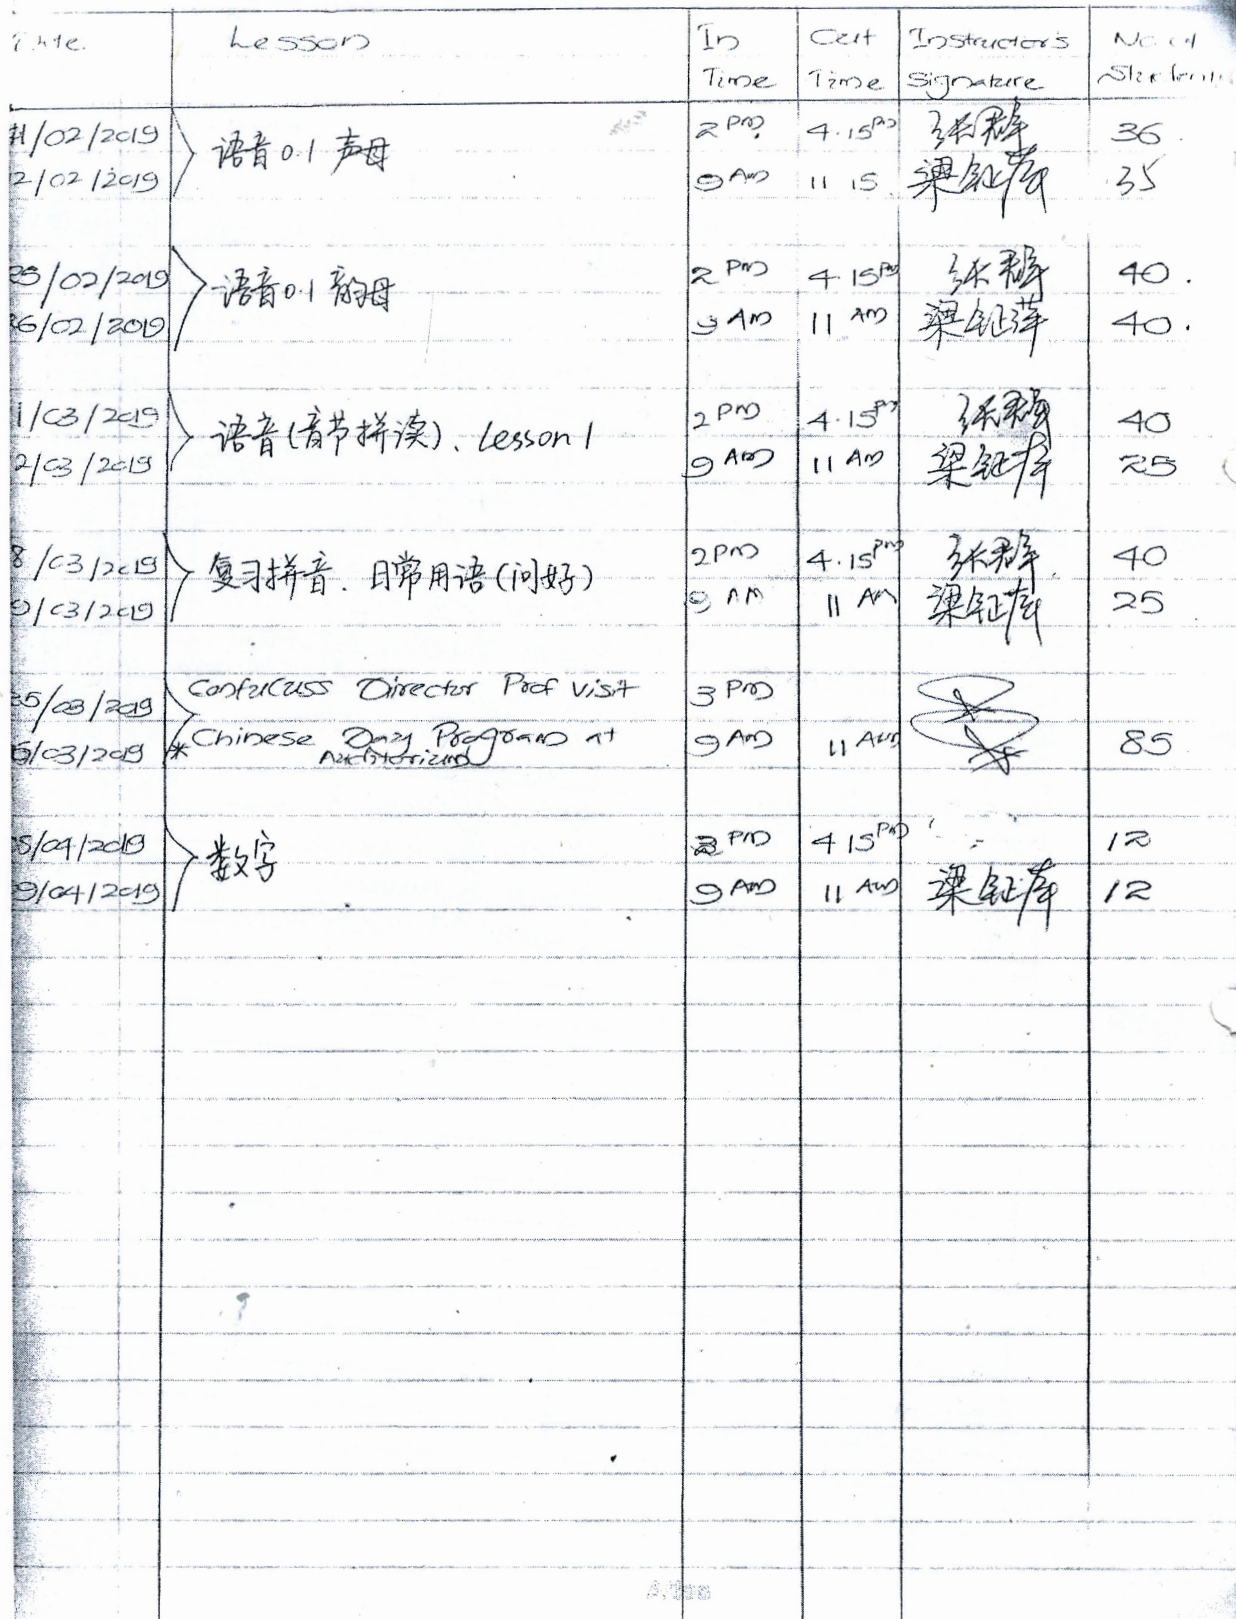 Date Lesson In Time Out Time Instructor's Signature No. of Students
11/02/2019 语音0.1 声母 2 PM 4.15 PM 张群 36
2/02/2019 9 AM 11 15 梁钰萍 35
25/02/2019 语音0.1 韵母 2 PM 4.15 PM 张群 40
26/02/2019 9 AM 11 AM 梁钰萍 40
1/03/2019 语音(音节拼读)、Lesson 1 2 PM 4.15 PM 张群 40
2/03/2019 9 AM 11 AM 梁钰萍 25
8/03/2019 复习拼音、日常用语(问好) 2 PM 4.15 PM 张群 40
9/03/2019 9 AM 11 AM 梁钰萍 25
25/03/2019 Confucuss Director Prof visit 3 PM
6/03/2019 * Chinese Day Program at Auditorium 9 AM 11 AM 85
5/04/2019 数字 PM 4 15 PM 12
9/04/2019 9 AM 11 AM 梁钰萍 12